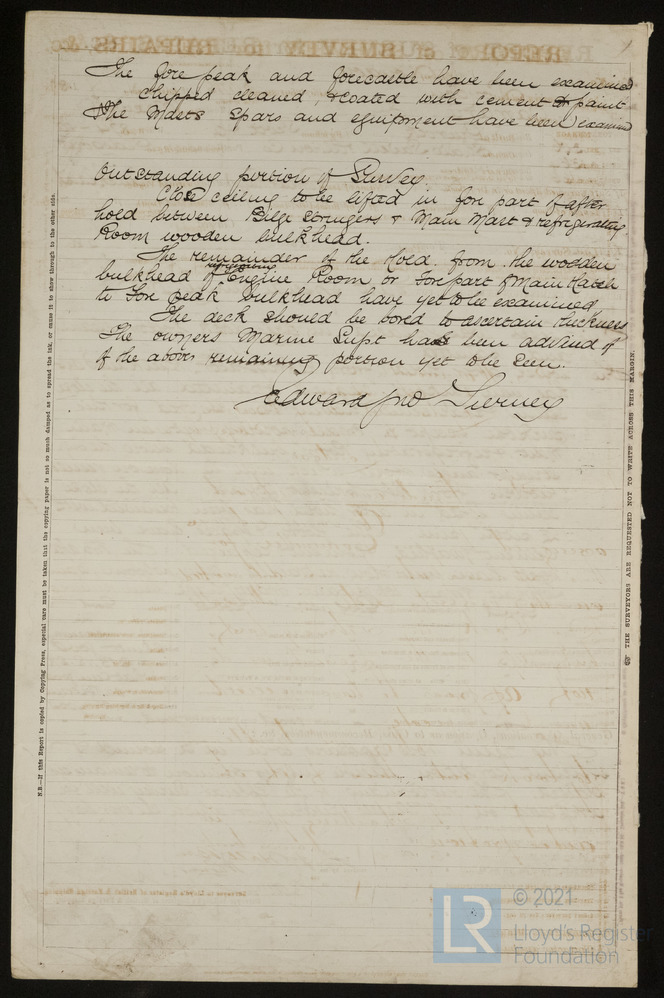 The fore peak and forecastle have been examined
chipped cleaned, & coated with cement & paint
The Masts Spars and equipment have been examined
Outstanding portion of Survey
Close ceiling to be lifted in fore part of after
hold between Bilge Stringers & Main Mast & refrigerating
Room wooden bulkhead.
The remainder of the Hold. from the wooden
bulkhead of Engine Room or Fore part of Main Hatch
to Fore peak bulkhead have yet to be examined
The deck should be bored to ascertain thickness
The owners Marine Supt has been advised of
of the above remaining portion yet to be seen.
Edward Jno Tierney
N.B.—If this Report is copied by Copying Press, especial care must be taken that the copying paper is not so much damped as to spread the ink, or cause it to show through to the other side.
THE SURVEYORS ARE REQUESTED NOT TO WRITE ACROSS THIS MARGIN.
LR
© 2021
Lloyd's Register
Foundation